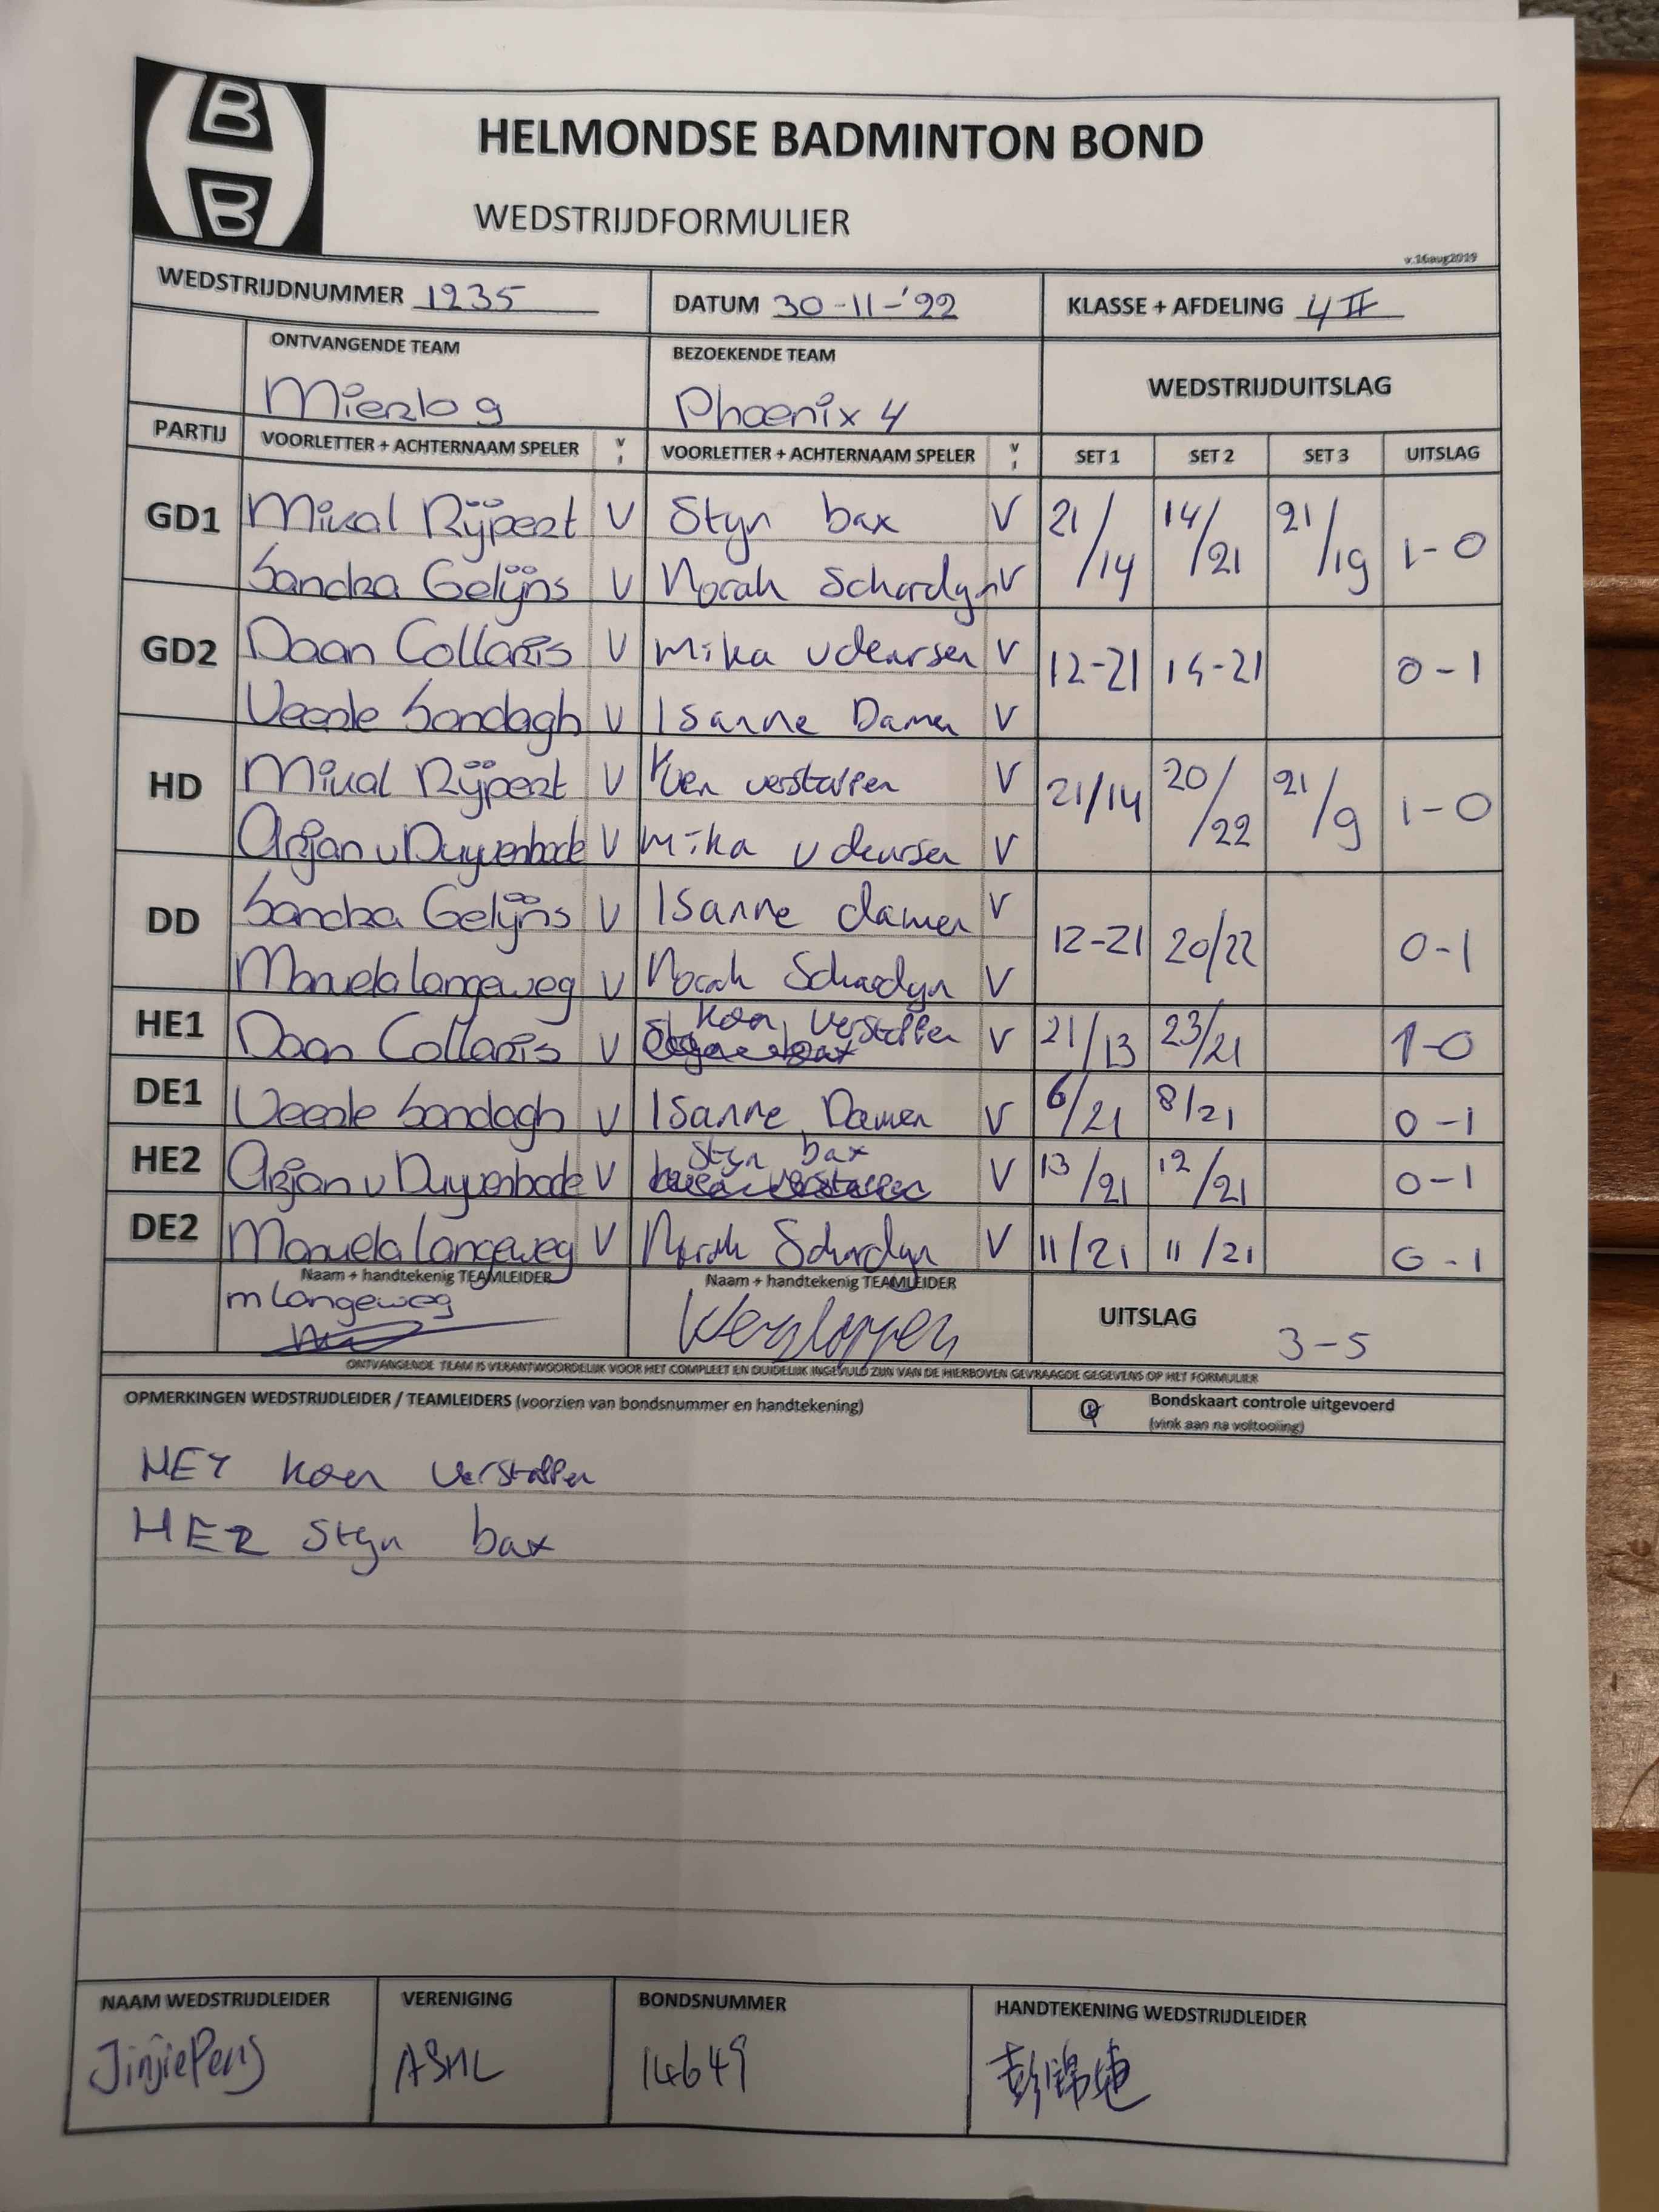 B
B
HELMONDSE BADMINTON BOND
WEDSTRIJDFORMULIER
v.16aug2019
WEDSTRIJDNUMMER 1235 DATUM 30-11-'22 KLASSE + AFDELING 4 II
ONTVANGENDE TEAM BEZOEKENDE TEAM WEDSTRIJDUITSLAG
Mierlo 9 Phoenix 4
PARTIJ VOORLETTER + ACHTERNAAM SPELER V VOORLETTER + ACHTERNAAM SPELER V SET 1 SET 2 SET 3 UITSLAG
GD1 Mical Rijpert V Styn bax V 21/14 14/21 21/19 1-0
Sandra Gelijns V Norah Schardyn V
GD2 Daan Collaris V Mika v deursen V 12-21 14-21 0-1
Veerle Sondagh V Isanne Damen V
HD Mical Rijpert V Koen verstappen V 21/14 20/22 21/9 1-0
Arjan v Duyvenbode V Mika v deursen V
DD Sandra Gelijns V Isanne damen V 12-21 20/22 0-1
Manuela Langeweg V Norah Schardyn V
HE1 Daan Collaris V Koen Verstappen V 21/13 23/21 1-0
DE1 Veerle Sondagh V Isanne Damen V 6/21 8/21 0-1
HE2 Arjan v Duyvenbode V Styn bax V 13/21 12/21 0-1
DE2 Manuela Langeweg V Norah Schardyn V 11/21 11/21 0-1
Naam + handtekenig TEAMLEIDER Naam + handtekenig TEAMLEIDER
m Langeweg UITSLAG 3-5
ONTVANGENDE TEAM IS VERANTWOORDELIJK VOOR HET COMPLEET EN DUIDELIJK INGEVULD ZIJN VAN DE HIERBOVEN GEVRAAGDE GEGEVENS OP HET FORMULIER
OPMERKINGEN WEDSTRIJDLEIDER / TEAMLEIDERS (voorzien van bondsnummer en handtekening) Bondskaart controle uitgevoerd
(vink aan na voltooiing)
HE1 Koen Verstappen
HE2 Styn bax
NAAM WEDSTRIJDLEIDER VERENIGING BONDSNUMMER HANDTEKENING WEDSTRIJDLEIDER
Jinjie Peng ASML 14649